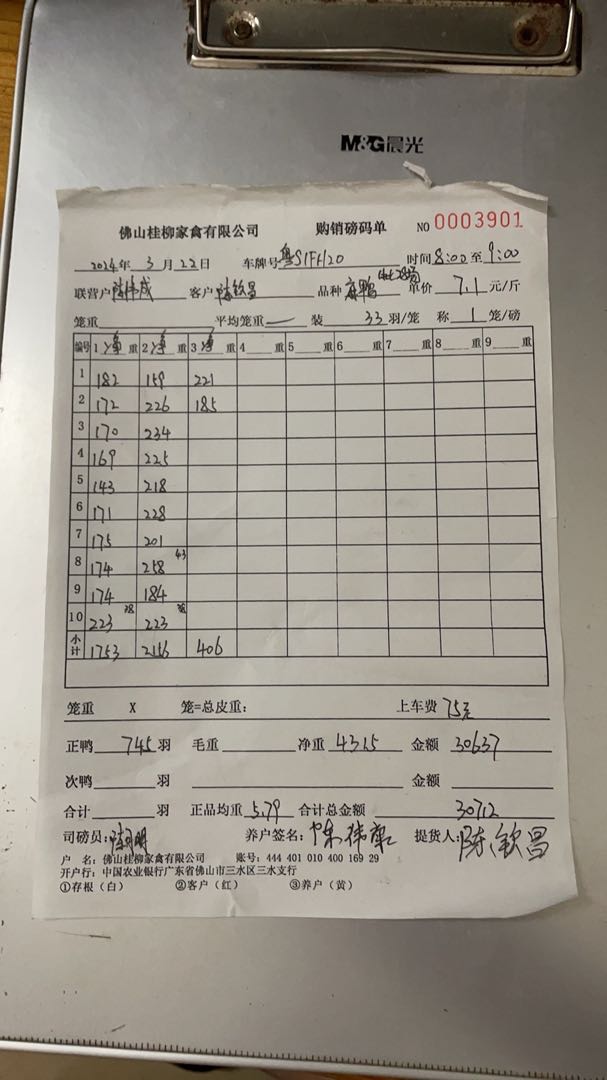 M&G晨光
佛山桂柳家禽有限公司 购销磅码单 NO 0003901
2024年 3月 22日 车牌号 粤S1FH20 时间 8:00 至 9:00
联营户 客户 陈钦昌 品种 麻鸭 单价 7.1 元/斤
笼重 平均笼重 — 装 33 羽/笼 称 1 笼/磅
编号 1 净 重 2 净 重 3 净 重 4 重 5 重 6 重 7 重 8 重 9 重
1 182 159 221
2 172 226 185
3 170 234
4 169 225
5 143 218
6 171 228
7 175 201
8 174 258 43
9 174 184
10 223 38 223 38
小计 1753 2156 406
笼重 X 笼=总皮重: 上车费 75元
正鸭 745 羽 毛重 净重 4315 金额 30637
次鸭 羽 金额
合计 羽 正品均重 5.79 合计总金额 30712
司磅员: 养户签名: 提货人: 陈钦昌
户 名: 佛山桂柳家禽有限公司 账号: 444 401 010 400 169 29
开户行: 中国农业银行广东省佛山市三水区三水支行
①存根(白) ②客户(红) ③养户(黄)